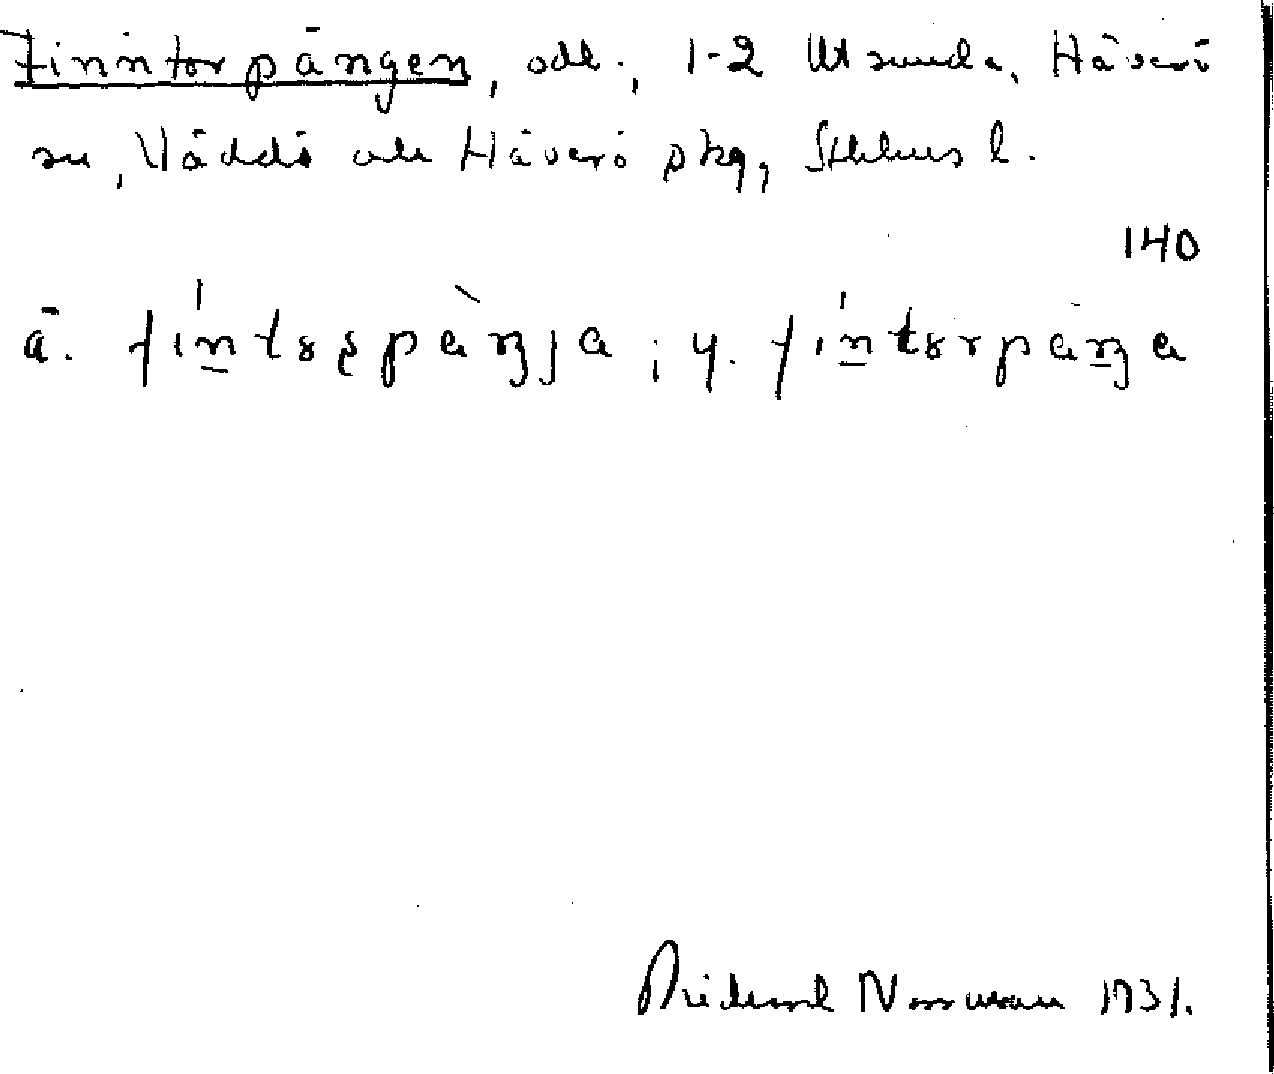 Finntorpängen, odl., 1-2 Utsunda, Häverö
sn, Väddö och Häverö skg, Sthlms l.
140
ä. fintorpäŋja; y. fintorpäŋa
Norrman 1931.